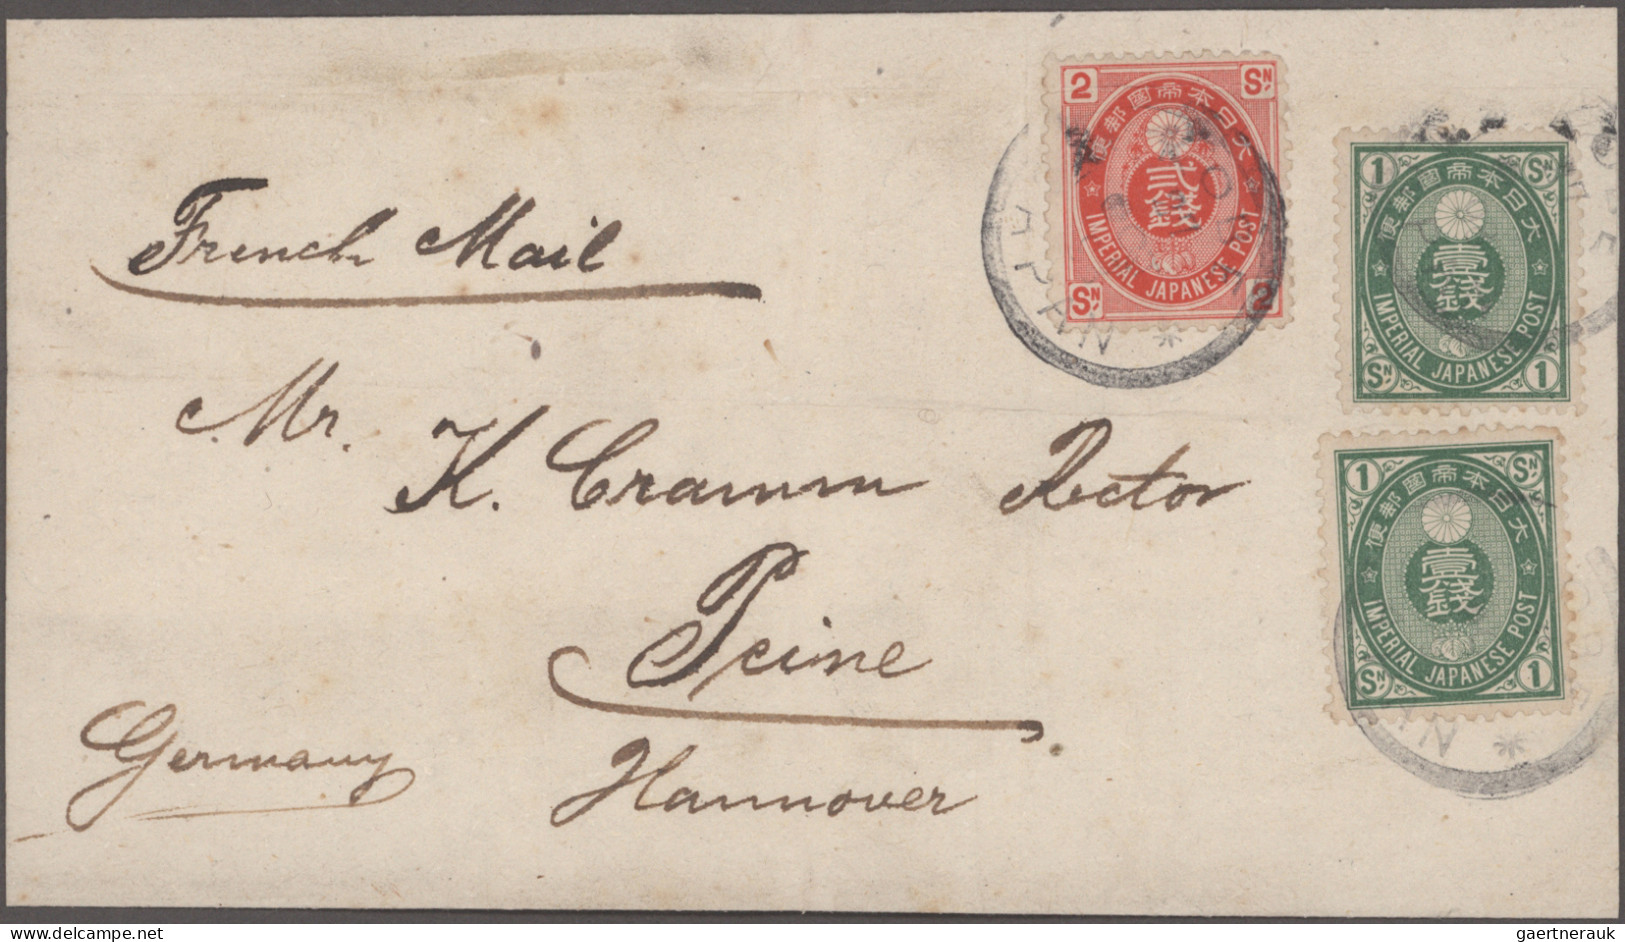 French Mail
Mr. K. Cramm Rector
Peine
Hannover
Germany
2 SN
大日本帝國郵便
貳錢
IMPERIAL JAPANESE POST
SN 2
JAPAN
1 SN
大日本帝國郵便
壹錢
IMPERIAL JAPANESE POST
SN 1
1 SN
大日本帝國郵便
壹錢
IMPERIAL JAPANESE POST
SN 1
gaertnerauk